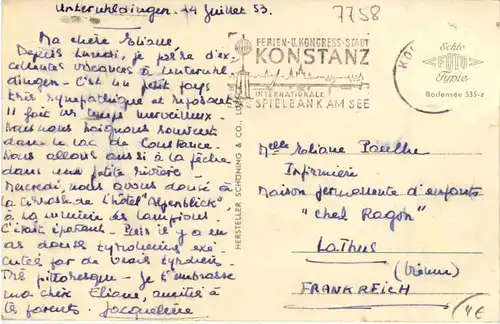 Unteruhldingen. 14 Juillet 53.
7758
Ma chère Eliane
Depuis Lundi, je passe d'ex-
cellentes vacances à Unteruhl-
dingen - C'est un petit pays
très sympathique et reposant
Il fait un temps merveilleux.
Nous nous baignons souvent
dans le lac de Constance.
Nous allons aussi à la pêche
dans une petite rivière -
Mercredi, nous avons dansé à
la terrasse de l'hôtel "Alpenblick"
à la lumière des lampions.
C'était épatant. Puis il y a eu
des danses tyroliennes exé-
cutées par de vrais tyroliens.
Très pittoresque - Je t'embrasse
ma chère Eliane, amitié à
tes parents. Jacqueline
FERIEN-U.KONGRESS-STADT
KONSTANZ
INTERNATIONALE
SPIELBANK AM SEE
KO
Echte
FOTO
Typie
Bodensee 535-z
HERSTELLER SCHÖNING & CO., LÜ
Melle Eliane
Infirmière
Maison permanente d'enfants
"chez Ragon"
Lathus
(Vienne)
FRANKREICH
4€